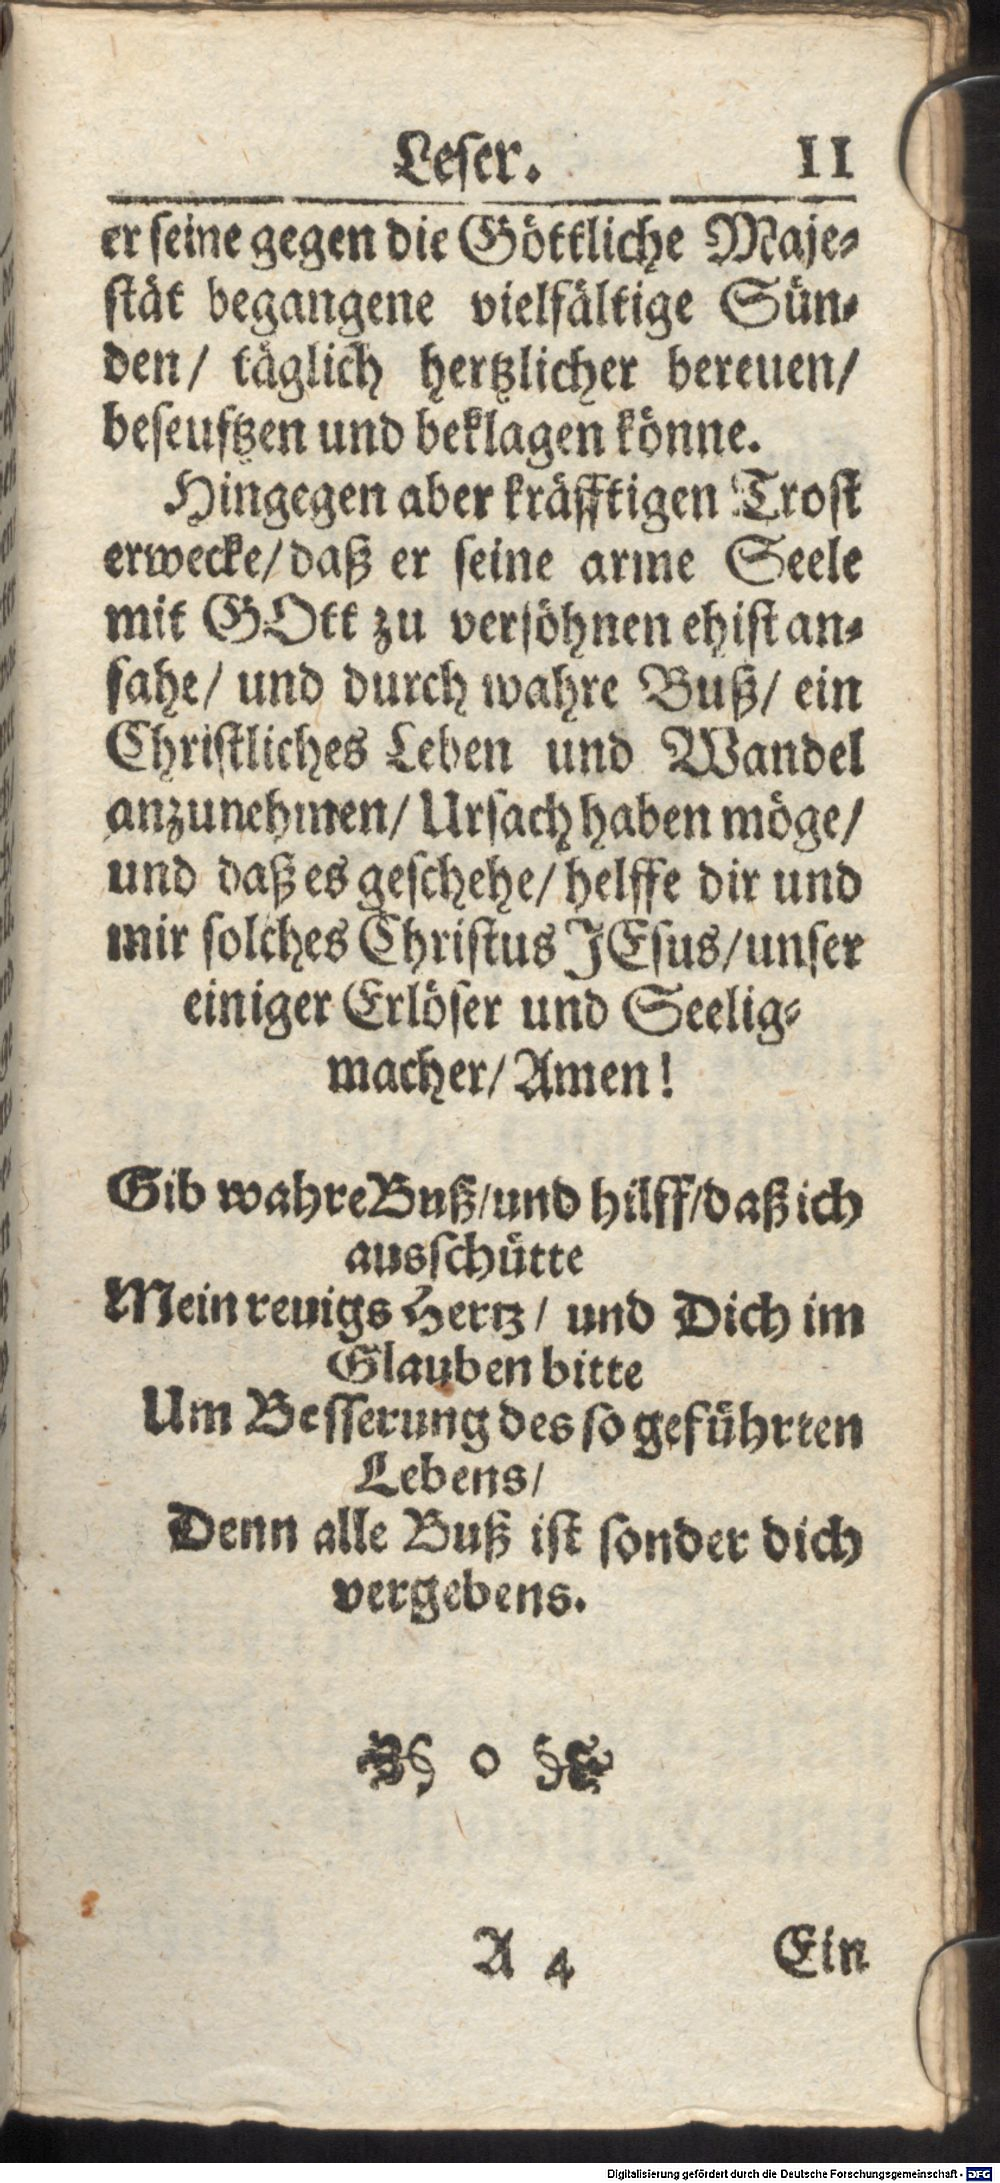 Leser. 11
er seine gegen die Göttliche Maje-
stät begangene vielfältige Sün-
den/ täglich hertzlicher bereuen/
beseuftzen und beklagen könne.
Hingegen aber kräfftigen Trost
erwecke/ daß er seine arme Seele
mit GOtt zu versöhnen ehist an-
sahe/ und durch wahre Buß/ ein
Christliches Leben und Wandel
anzunehmen/ Ursach haben möge/
und daß es geschehe/ helffe dir und
mir solches Christus JEsus/ unser
einiger Erlöser und Seelig-
macher/ Amen!
Gib wahre Buß/ und hilff/ daß ich
ausschütte
Mein reuigs Hertz/ und Dich im
Glauben bitte
Um Besserung des so geführten
Lebens/
Denn alle Buß ist sonder dich
vergebens.
A 4 Ein
Digitalisierung gefördert durch die Deutsche Forschungsgemeinschaft - DFG